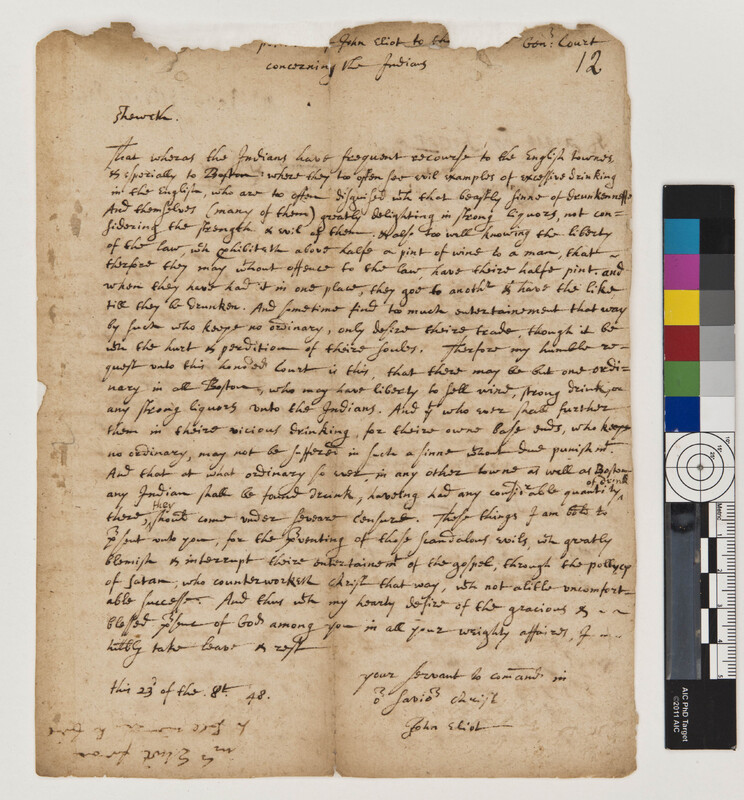 John Eliot to the Gen: Court
concerning the Indians
12
sheweth.
That wheras the Indians have frequent recourse to the English townes
& especially to Boston where they too often see evil examples of excessive drinking
in the English, who are to often disguised wth that beastly sinne of drunkennesse
And themselves (many of them) greatly delighting in strong liquors, not con=
sidering the strength & evil of them. & also too well knowing the liberty
of the law, wh prohibiteth above halfe a pint of wine to a man, that
therfore they may wthout offence to the law have theire halfe pint. and
when they have had it in one place, they goe to anothr & have the like
till they be drunken. And sometime find too much entertainement that way
by such who keepe no ordinary, only desire theire trade, though it be
wth the hurt & perdition of theire soules. Therfore my humble re=
quest unto this honored Court is this, that there may be but one ordi=
nary in all Boston, who may have liberty to sell wine, strong drink, or
any strong liquors unto the Indians. And yt who ever shall further
them in theire vicious drinking, for theire owne base ends, who keepe
no ordinary, may not be suffered in such a sinne wthout due punishmt.
And that at what ordinary so ever, in any other towne as well as Boston
any Indian shall be found drunk, having had any considrable quantity of drink
there, they should come under severe censure. These things I am bold to
psent unto you, for the pventing of those scandalous evils, wh greatly
blemish & interrupt theire entertainemt of the gospel, through the pollicy
of satan, who counterworketh Christ that way, wth not alitle uncomfort=
able successe. And thus wth my hearty desire of the gracious &
blessed psenc of God among you in all your weighty affaires, I
humbly take leave & rest
your servant to comand in
or Savior Christ
John Eliot
this 23 of the. 8t. 48.